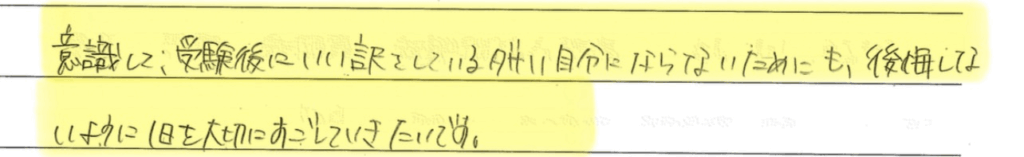 意識して、受験後にいい訳をしている醜い自分にならないためにも、後悔してな
いように1日を大切にすごしていきたいです。